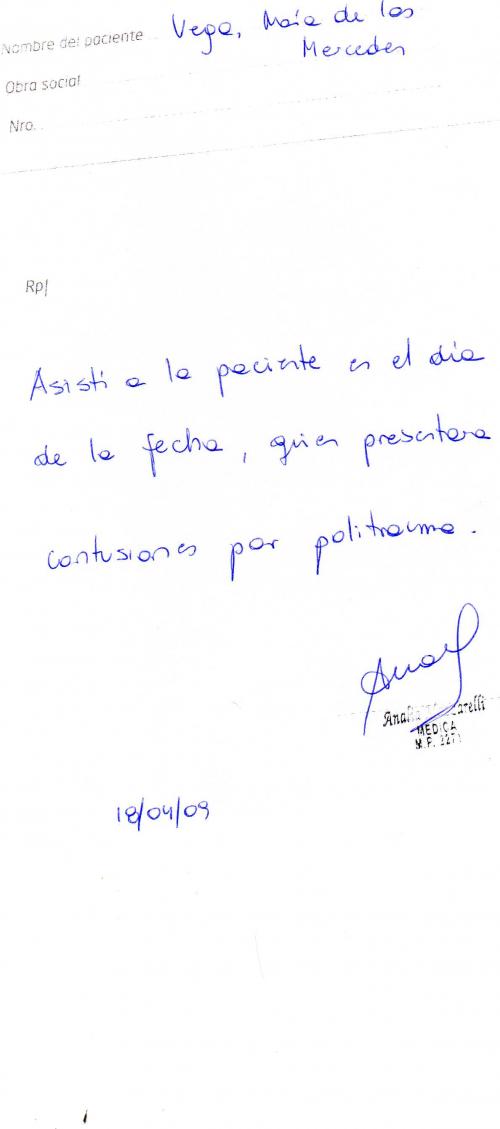 Nombre del paciente Vega, María de las
Mercedes
Obra social
Nro.
Rp/
Asistí a la paciente en el día
de la fecha, quien presentara
contusiones por politrauma.
MEDICA
M.P. 2271
18/04/09